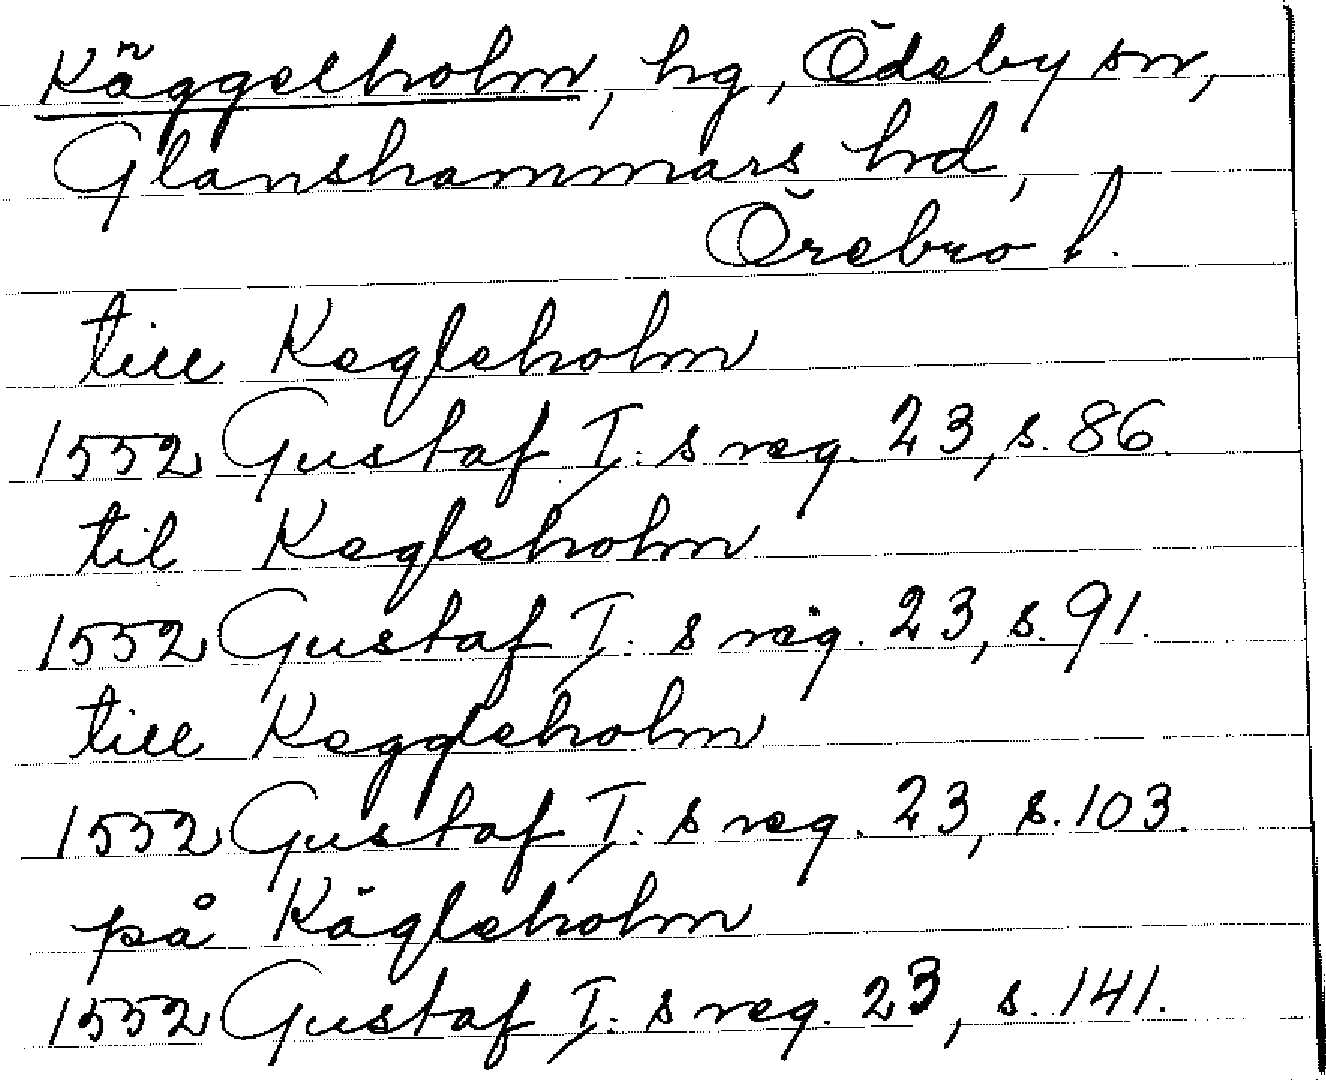 Käggelholm, hg, Ödeby sn,
Glanshammars hd,
Örebro l.
till Kegleholm
1552 Gustaf I:s reg. 23, s. 86.
til Kegleholm
1552 Gustaf I:s reg. 23, s. 91.
till Keggleholm
1552 Gustaf I:s reg. 23, s. 103.
på Kägleholm
1552 Gustaf I:s reg. 23, s. 141.